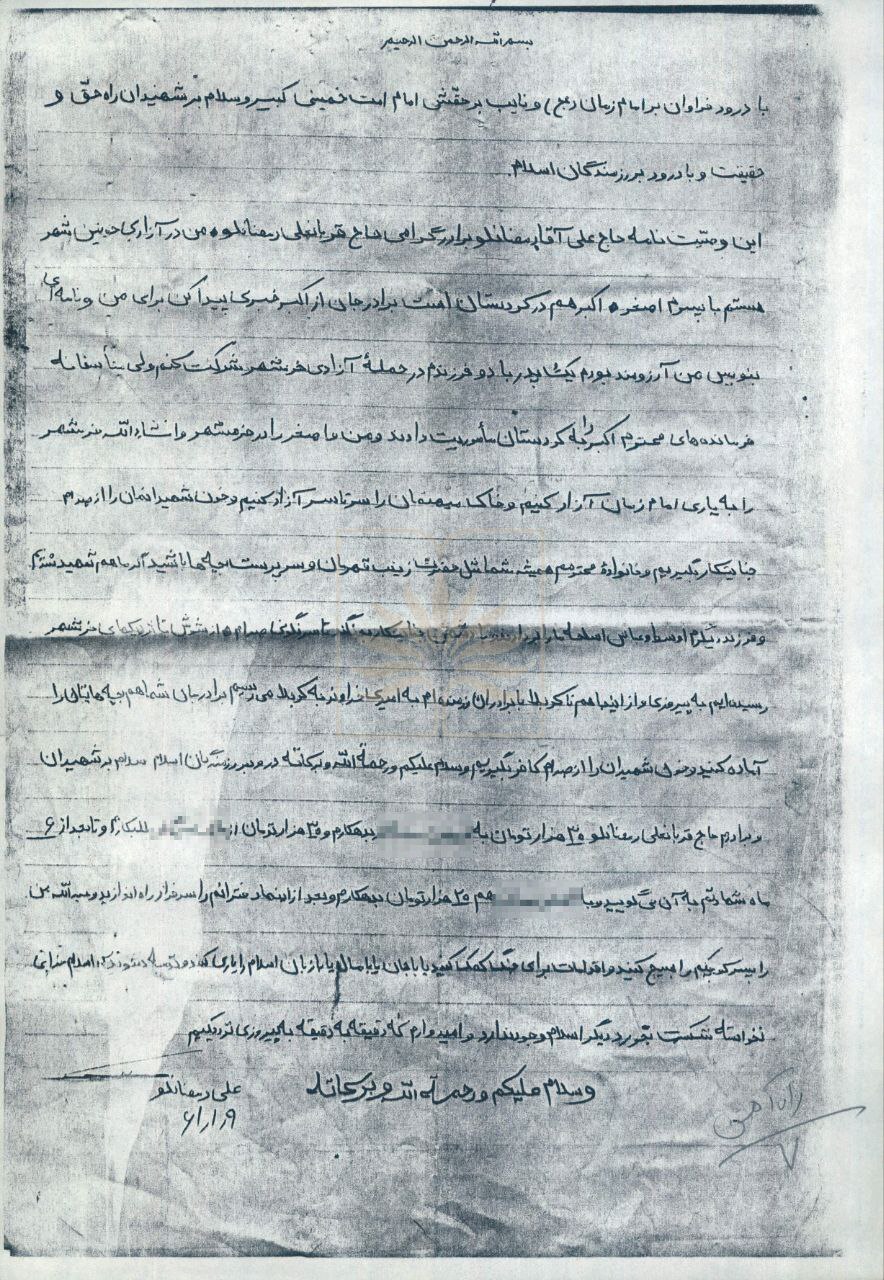 بسم الله الرحمن الرحیم
با درود فراوان بر امام زمان (عج) و نایب بر حقش امام امت خمینی کبیر و سلام بر شهیدان راه حق و
حقیقت و با درود بر رزمندگان اسلام.
این وصیت نامه حاج علی آقا رمضانلو برادر گرامی حاج قربانعلی رمضانلو من در آزادی خونین شهر
هستم با پسرم اصغر و اکبر هم در کردستان است برادر جان از اکبر خبری پیدا کن برای من و نامه ای
بنویس من آرزومند بودم یک پدر با دو فرزندم در حملهٔ آزادی خرمشهر شرکت کنم ولی متأسفانه
فرمانده های محترم اکبر را به کردستان مأموریت دادند و من و اصغر را در خرمشهر و انشاءالله خرمشهر
را به یاری امام زمان آزاد کنیم و خاک میهنمان را سرتاسر آزاد کنیم و خون شهیدانمان را از صدام
جنایتکار بگیریم و خانوادهٔ محترمم همیشه شما مثل حضرت زینب قهرمان و سرپرست بچه ها باشید اگر ما هم شهید شدیم
و فرزند دیگرم اوسط و عباس اسلحه ما را بردارند و خرمشهر
رسیده ایم به پیروزی و از اینجا هم تا کربلا با برادران رزمنده ام به امید خداوند به کربلا می رسیم برادر جان شما هم بچه هایتان را
آماده کنید و خون شهیدان را از صدام کافر بگیریم وسلام علیکم ورحمة الله وبرکاته درود بر رزمندگان اسلام سلام بر شهیدان
و برادرم حاج قربانعلی رمضانلو ۳۰ هزار تومان به بدهکارم و ۲۵ هزار تومان از طلبکارم و تا بعد از ۶
ماه شهادتم به آن می گویید و با هم ۲۰ هزار تومان بدهکارم و بعد از اینها دخترانم را سرفراز راه اندازید و عبدالله من
را پسر کوچکیم را بسیج کنید و اقدامات برای جنگ کمک کنید یا با جان یا با مال یا با زبان اسلام را یاری کنید اسلام خدایی
نخواسته شکست بخورد دیگر اسلام وجود ندارد و امیدوارم که دقیقه به دقیقه به پیروزی نزدیکیم
وسلام علیکم ورحمة الله وبرکاته
علی رمضانلو
۶۱/۱/۹
راه آهن
۷